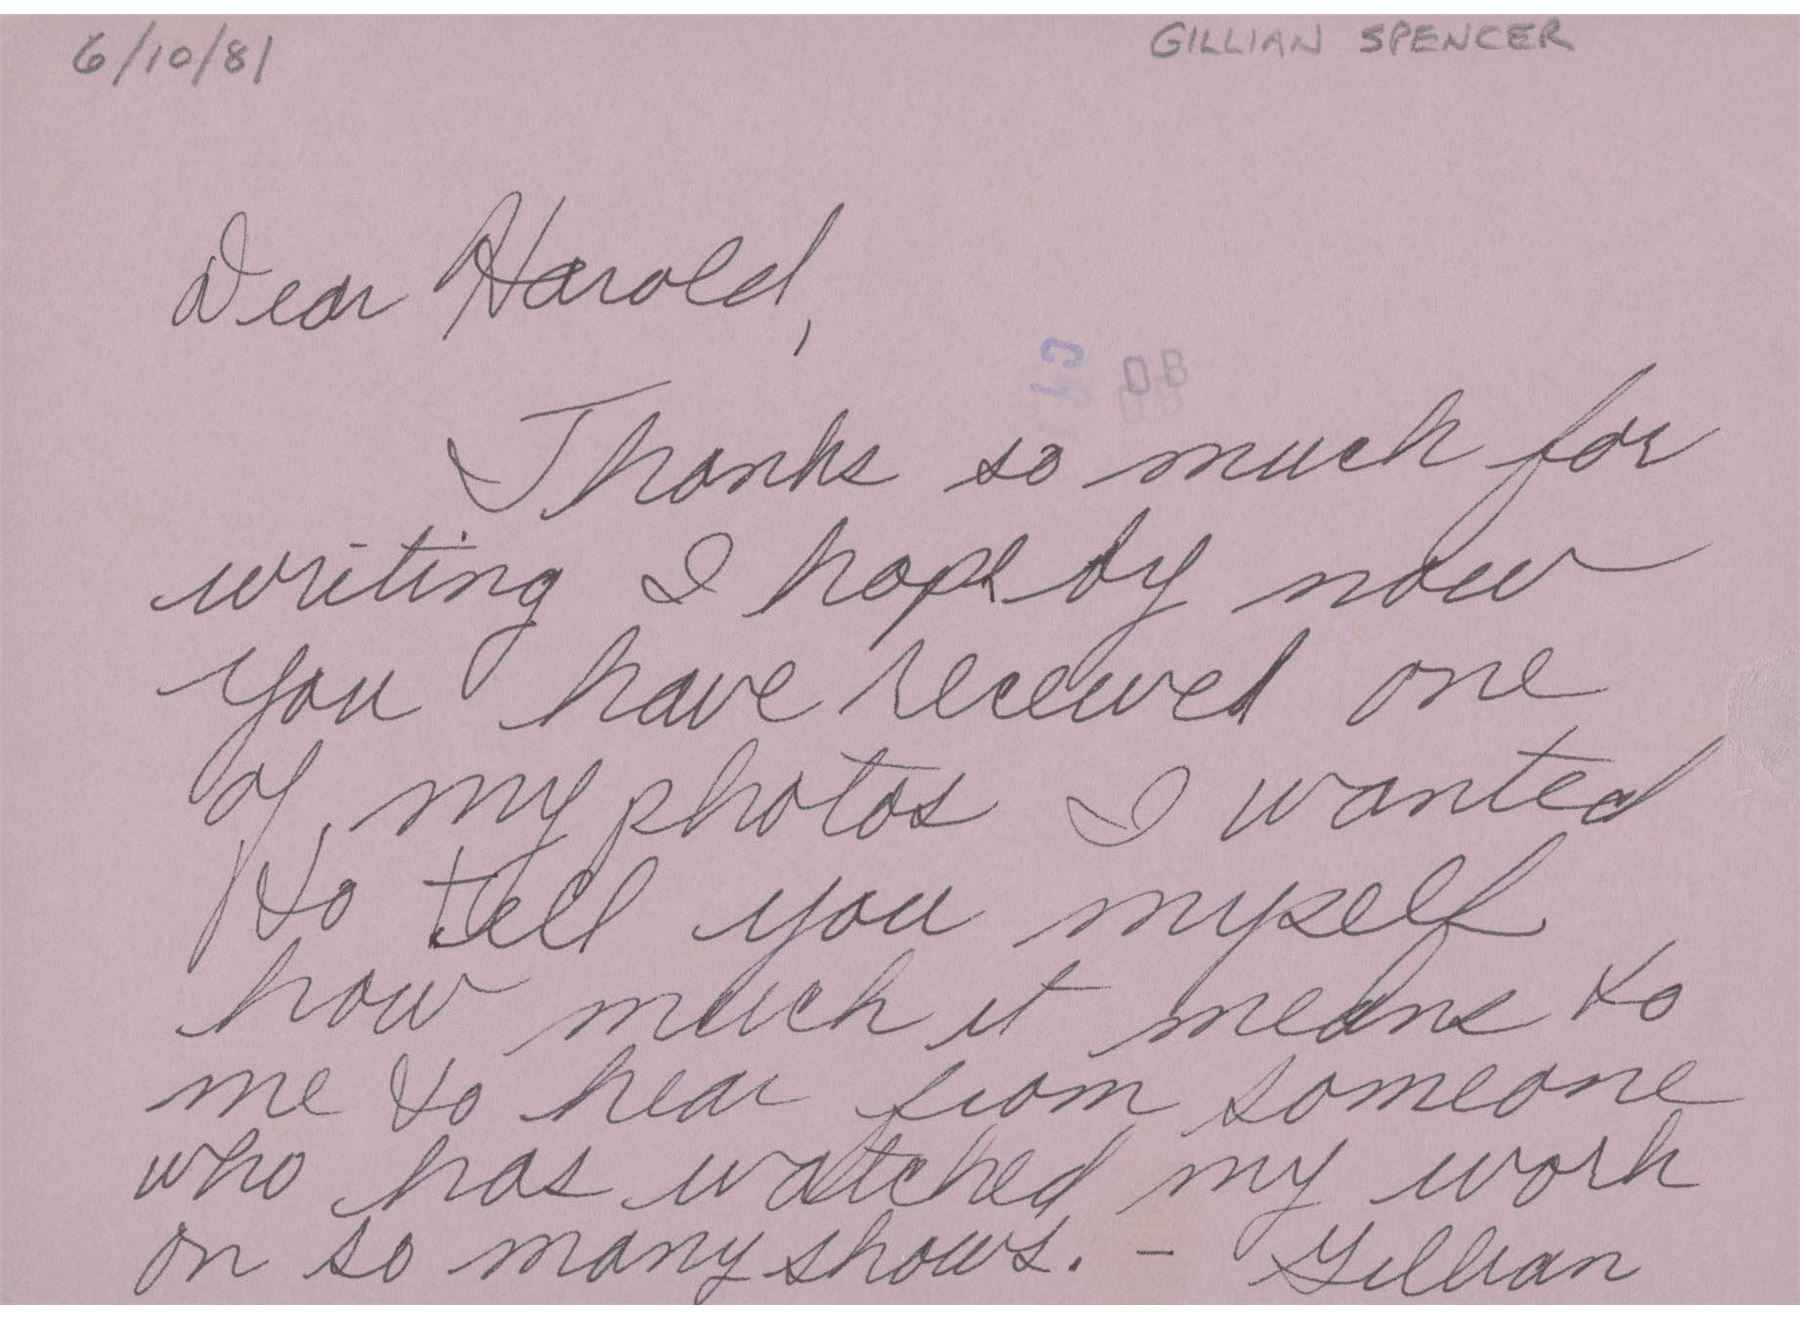 6/10/81
GILLIAN SPENCER
Dear Harold,
Thanks so much for
writing I hope by now
you have received one
of my photos I wanted
to tell you myself
how much it means to
me to hear from someone
who has watched my work
on so many shows. – Gillian